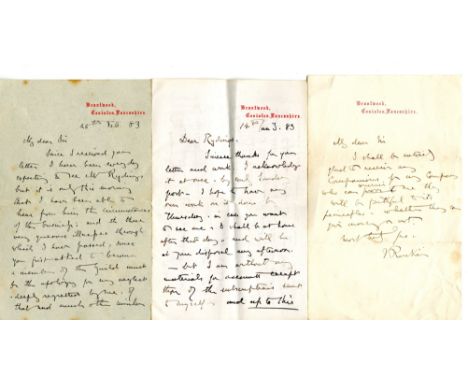 Brantwood,
Coniston, Lancashire.
20th Feb. 83
My dear Sir
Since I received your
letter I have been everyday
expecting to see Mr Rydings
but it is only this morning
that I have been able to
hear from him the circumstances
of the business: and the three
very grievous illnesses through
which I have passed, since
you first asked to become
a member of the Guild must
be the apology for any neglect
deeply regretted by me. I
that and much other
Brantwood,
Coniston, Lancashire.
14th Jan 3. 83
Dear Rydings,
Sincere thanks for your
letter
at once - by
post - I hope to have my
own work done by
Thursday, - can you want
to see me - I shall be at home
after that day, and will be
at your disposal any afternoon
- but I am without any
materials for accounts except
those of the subscriptions sent
to myself and up to this
Brantwood,
Coniston, Lancashire.
My dear Sir
I shall be entirely
glad to receive any
Companions, for any Company
who can
will be faithful to its
principles - whether they can
give money or not
most
J Ruskin